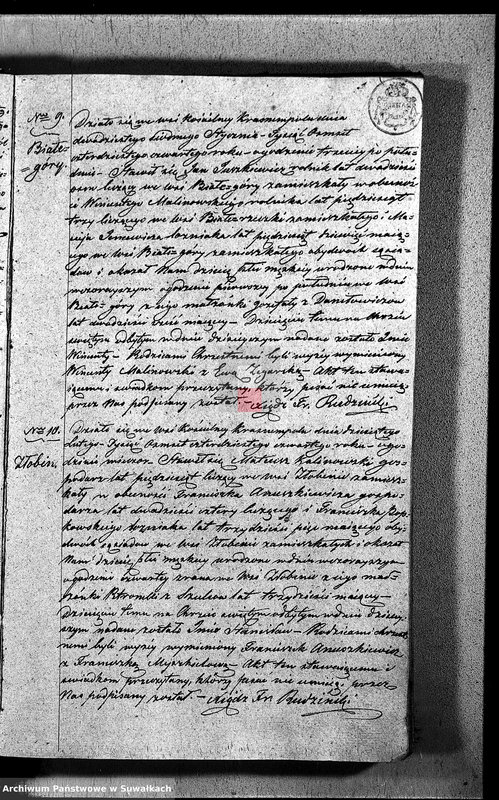 Nro 9.
Białe-
góry.
Działo się we wsi Kościelny Krasnempolu dnia
dwudziestego siódmego Stycznia Tysiąc Ośmset
czterdziestego czwartego roku o godzinie trzeciej po połu-
dniu. Stawił się Jan Jurkiewicz rolnik lat dwadzieścia
ośm liczący we wsi Białogóry zamieszkały w obecnoś-
ci Wincentego Malinowskiego rolnika lat pięćdziesiąt
trzy liczącego we wsi zamieszkałego i Ma-
cieja lat pięćdziesiąt mają-
cego we wsi Białogóry zamieszkałego obydwóch sąsia-
dów i okazał Nam dziecię płci męzkiej urodzone w dniu
wczorajszym o godzinie pierwszej po południu we wsi
Białogóry z jego małżonki Józefaty z Daniłowiczów
lat dwadzieścia sześć mającej Dziecięciu temu na Chrzcie
świętym odbytym w dniu dzisiejszym nadane zostało Imie
Wincenty Rodzicami Chrzestnemi byli wyżej wymieniony
Wincenty Malinowski z Ewą Akt ten stawa-
jącemu i świadkom przeczytany, którzy pisać nie umieją
przez Nas podpisany został. Xiądz Fr. Rudziński
Nro 10.
Żłobin.
Działo się we wsi Kościelny Krasnempolu dnia dziesiątego
Lutego Tysiąc Ośmset czterdziestego czwartego roku o go-
dzinie wieczor. Stawił się Mateusz Kalinowski gos-
podarz lat pięćdziesiąt liczący we wsi Żłobinie zamiesz-
kały w obecności Franciszka Anuszkiewicza gospo-
darza lat dwadzieścia cztery liczącego i Franciszka
kowskiego lat trzydzieści pięć mającego oby-
dwóch sąsiadów we wsi Żłobinie zamieszkałych i okazał
Nam dziecię płci męzkiej urodzone w dniu wczorajszym
o godzinie czwartej zrana we wsi Żłobinie z jego mał-
żonki Petronelli z lat trzydzieści mającej
Dziecięciu temu na Chrzcie świętym odbytym w dniu dzisiej-
szym nadane zostało Imie Stanisław Rodzicami chrzest-
nemi byli wyżej wymieniony Franciszek Anuszkiewicz
z Franciszką Akt ten stawającemu i
świadkom przeczytany, którzy pisać nie umieją przez
Nas podpisany został. Xiądz Fr. Rudziński
Archiwum Państwowe w Suwałkach